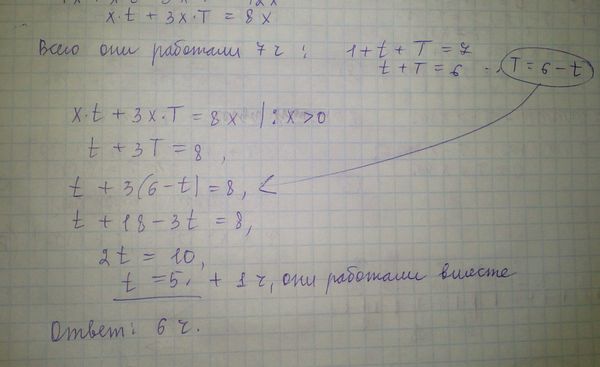 x·t + 3x·T = 8x
Всего они работали 7 ч : 1 + t + T = 7
t + T = 6 , T = 6 - t
x·t + 3x·T = 8x | : x > 0
t + 3T = 8 ,
t + 3(6 - t) = 8,
t + 18 - 3t = 8,
2t = 10,
t = 5, + 1 ч, они работали вместе
Ответ: 6 ч.